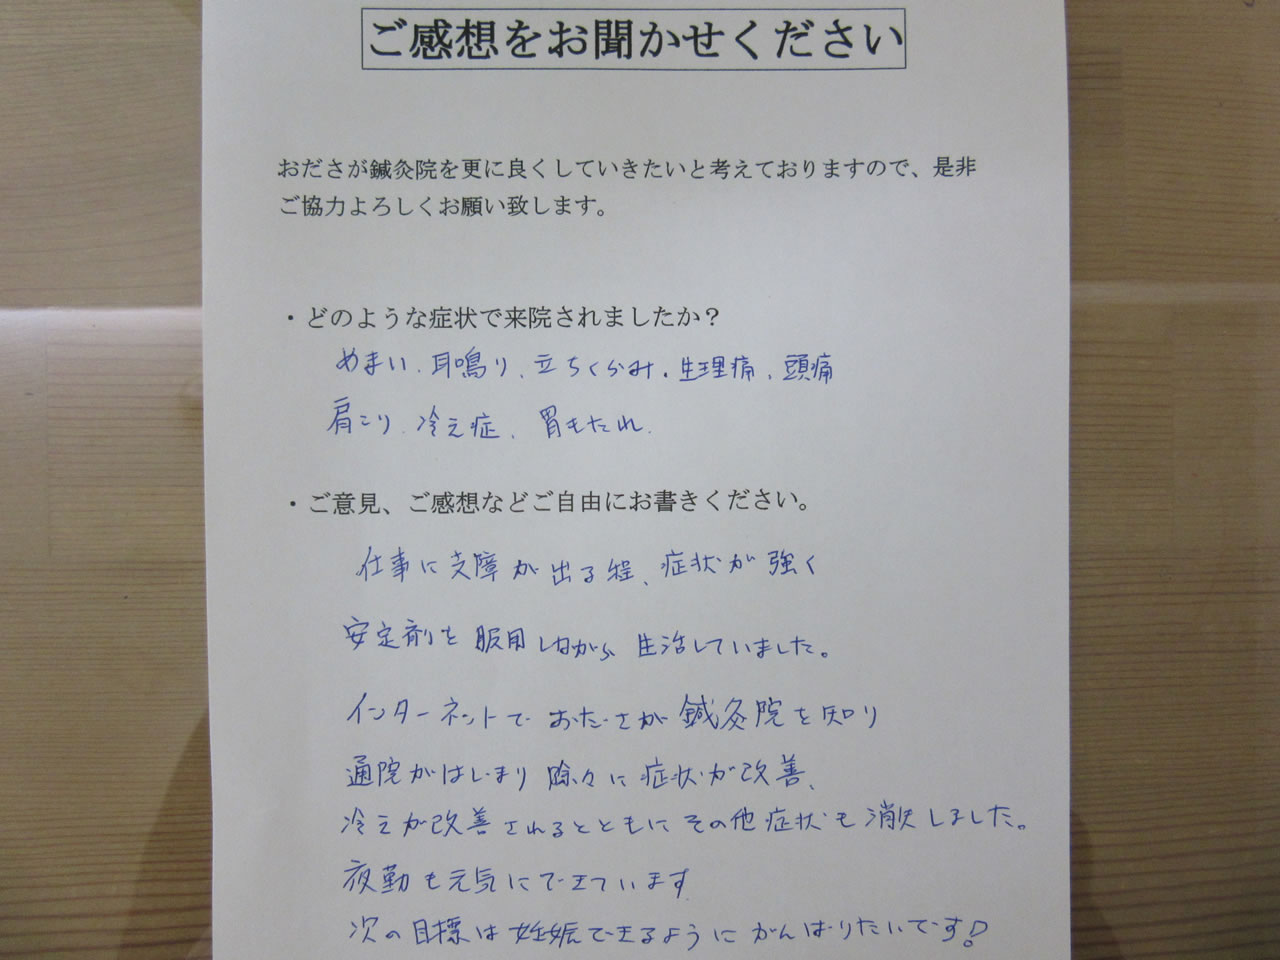 ご感想をお聞かせください
おださが鍼灸院を更に良くしていきたいと考えておりますので、是非
ご協力よろしくお願い致します。
・どのような症状で来院されましたか？
めまい、耳鳴り、立ちくらみ、生理痛、頭痛
肩こり、冷え症、胃もたれ、
・ご意見、ご感想などご自由にお書きください。
仕事に支障が出る程、症状が強く
安定剤を服用しながら生活していました。
インターネットでおださが鍼灸院を知り
通院がはじまり除々に症状が改善、
冷えが改善されるとともにその他症状も消失しました。
夜勤も元気にできています
次の目標は妊娠できるようにがんばりたいです!